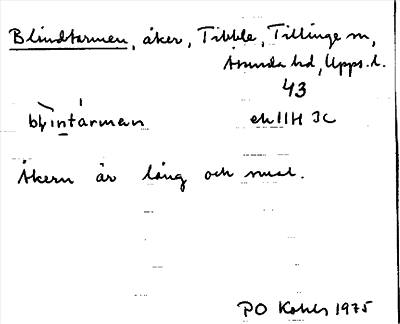 Blindtarmen, åker, Tibble, Tillinge sn,
Åsunda hd, Upps. l.
43
blịntárman ek 11H 3c
Åkern är lång och smal.
PO Kohls 1975